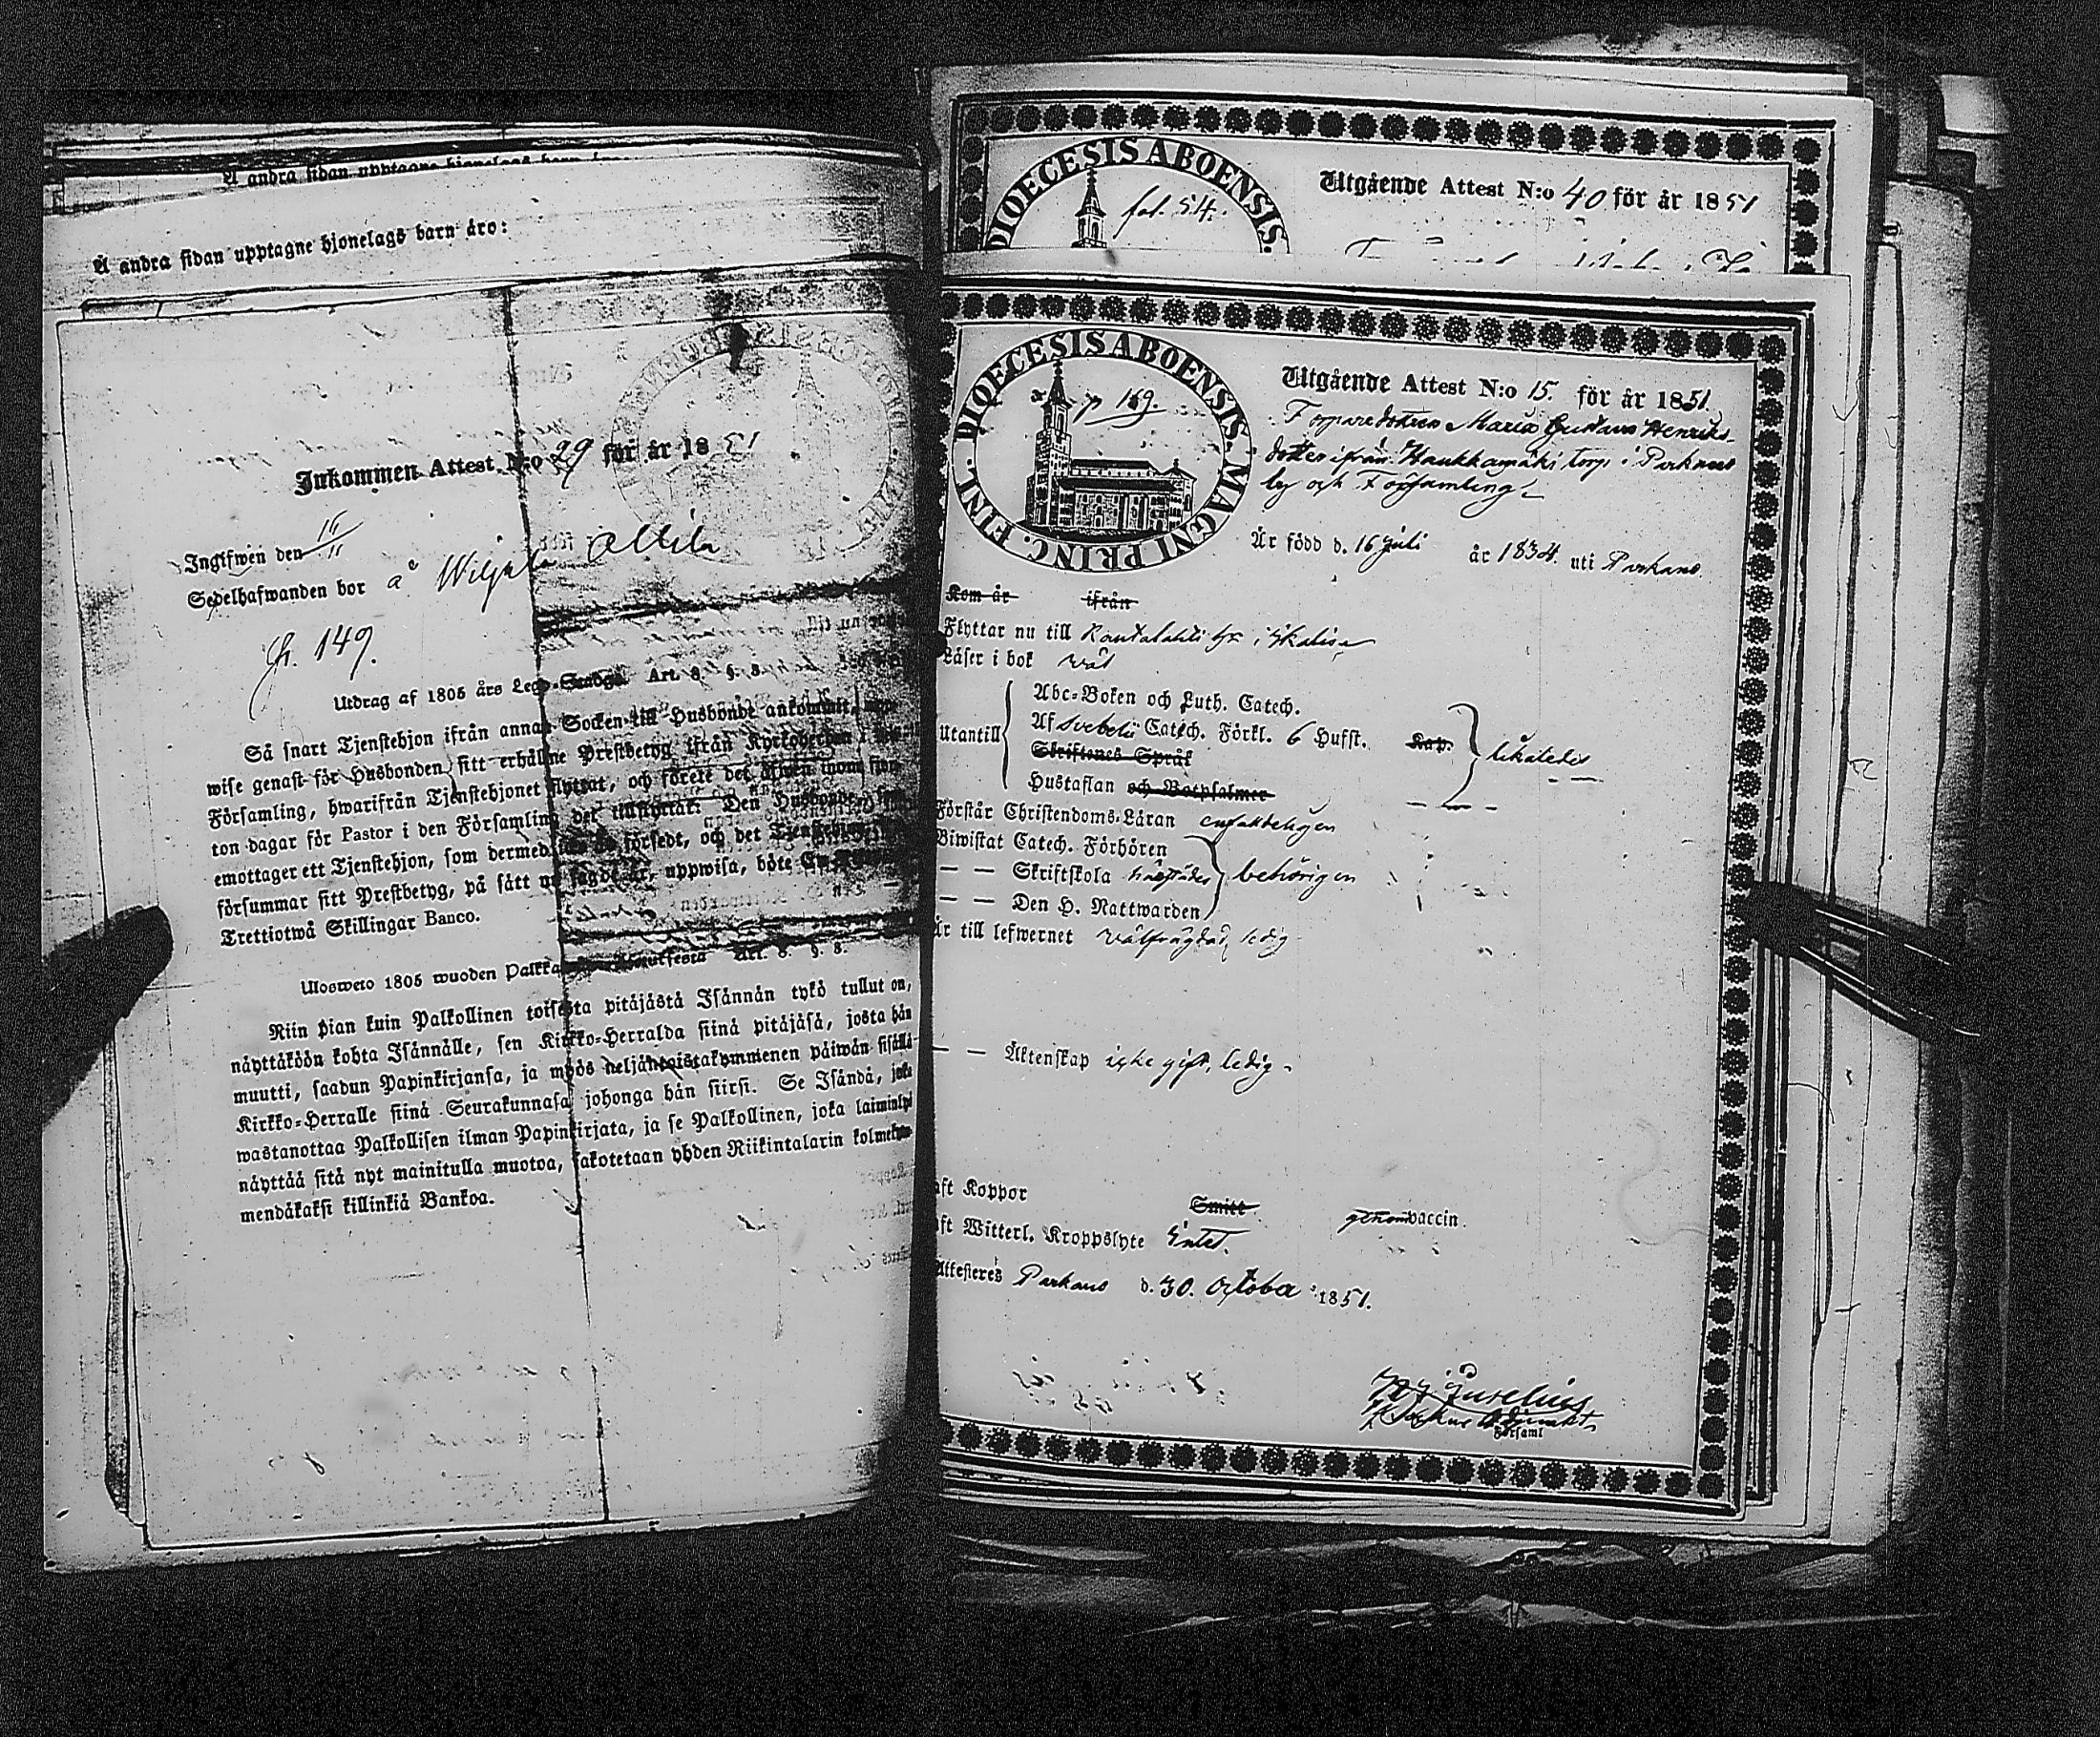 A andra sidan upptagne hjonelags barn äro:
A andra sidan upptagne hjonelags barn äro:
Inkommen Attest N:o 29 för år 1851
Ingifwen den 16/11
Sedelhafwanden bor å Wiljala Attila
fr. 149.
Utdrag af 1805 års Lego-Stadga Art. 8. §. 8.
Så snart Tjenstehjon ifrån annan Socken till Husbonde ankommit, upp-
wise genast för Husbonden sitt erhållne Prestbetyg ifrån Kyrkoherden i
Församling, hwarifrån Tjenstehjonet flyttat, och förete det äfwen inom fjor-
ton dagar för Pastor i den Församling det tillflyttat. Den Husbonde, som
emottager ett Tjenstehjon, som dermed försedt, och det Tjenstehjon
försummar sitt Prestbetyg, på sätt nu sagdt är, uppwisa, böte En
Trettiotwå Skillingar Banco.
Ulosweto 1805 wuoden Palkka Art. 8. §. 8.
Niin pian kuin Palkollinen toisesta pitäjästä Isännän tykö tullut on,
näyttäköön kohta Isännälle, sen Kirkko-Herralda siinä pitäjäsä, josta hän
muutti, saadun Papinkirjansa, ja myös neljäntoistakymmenen päiwän sisällä
Kirkko-Herralle siinä Seurakunnasa johonga hän siirsi. Se Isändä, joka
wastanottaa Palkollisen ilman Papinkirjata, ja se Palkollinen, joka laiminlyö
näyttää sitä nyt mainitulla muotoa, sakotetaan yhden Riikintalarin kolmekym-
mendäkaksi killinkiä Bankoa.
DIOECESIS ABOENSIS.
fol. 54.
Utgående Attest N:o 40 för år 1851
DIOECESIS ABOENSIS. MAGNI PRINC. FINL.
p 169.
Utgående Attest N:o 15. för år 1851.
Torparedottren Maria Gustava Henriks-
dotter ifrån Haukkamäki torp i Parkano
by och Församling
Är född d. 16 Juli år 1834. uti Parkano.
Kom år ifrån
Flyttar nu till i Ikalis
Läser i bok wäl
Abc-Boken och Luth. Catech.
Utantill Af Svebelii Catech. Förkl. 6 Hufst. Kap. likaledes
Skriftenes Språk
Hustaflan och Botpsalmer
Förstår Christendoms-Läran enfaldeligen
Biwistat Catech. Förhören
— — Skriftskola behörigen
— — Den H. Nattwarden
Är till lefwernet wälfrägdad, ledig
— — Äktenskap icke gift, ledig
aft Koppor Smitt genom vaccin.
aft Witterl. Kroppslyte Intet.
Attesteres Parkano d. 30. October 1851.
Juselius
Adjunkt
Församl